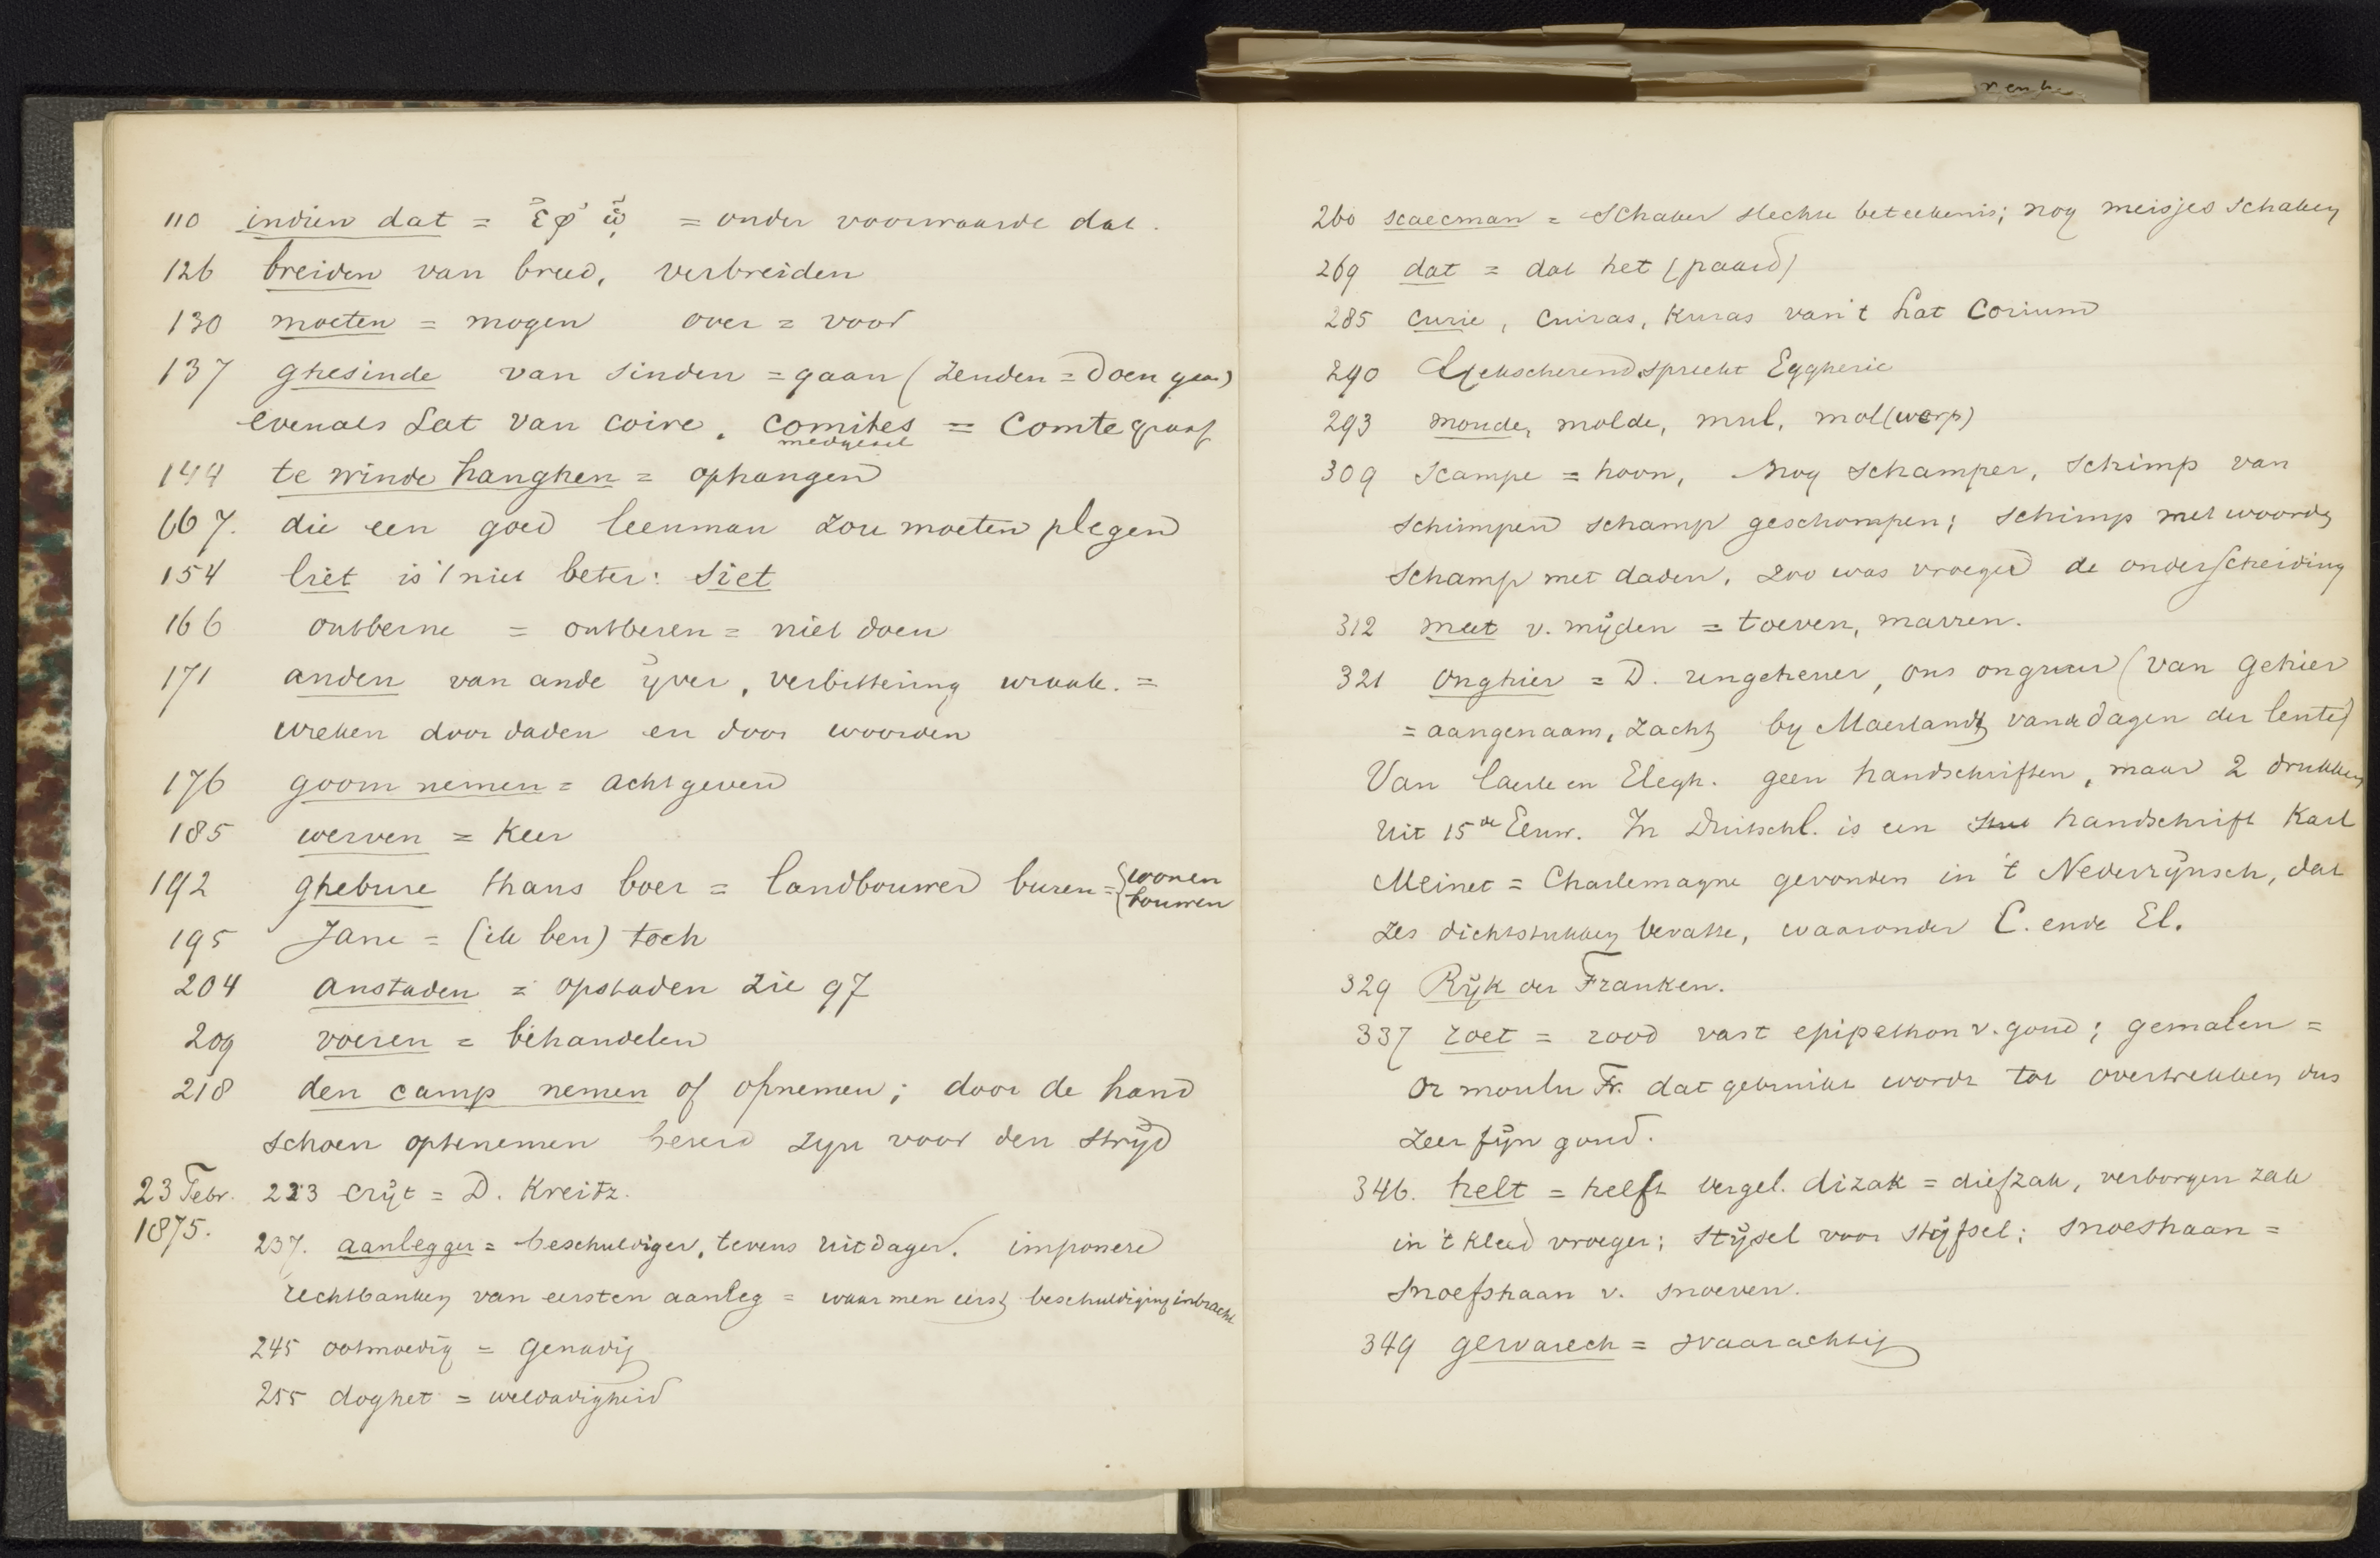 110 indien dat = ἐφ' ᾧ = onder voorwaarde dat.
126 breiden van breed, verbreiden
130 moeten = mogen over = voor
137 ghesinde van sinden = gaan (zenden = doen gaan)
evenals Lat van coire. comites = comte graaf
medgezel
144 te winde hanghen = ophangen
667. die een goed leenman zou moeten plegen
154 liet is 't niet beter: siet
166 ontberne = ontberen = niet doen
171 anden van ande ijver, verbittering wraak. =
wreken door daden en door woorden
176 goom nemen = acht geven
185 werven = keer
192 ghebure thans boer = landbouwer buren = { wonen
bouwen
195 Jane = (ik ben) toch
204 anstaden = opstaden zie 97
209 voeren = behandelen
218 den camp nemen of opnemen; door de hand
schoen optenemen bereid zyn voor den strijd
23 Febr. 223 crijt = D. Kreitz.
1875.
237. aanlegger = beschuldiger, tevens uitdager. imponere
rechtbanken van eersten aanleg = waar men eerst beschuldiging inbracht
245 ootmoedig = genadig
255 doghet = weldadigheid
260 scaecman = schaker slechte beteekenis; nog meisjes schaken
269 dat = dat het (paard)
285 curie, cuiras, kuras van 't Lat corium
290 Gekscherend spreekt Eggheric
293 moude, molde, mul, mol(werp)
309 scampe = hoon, nog schamper, schimp van
schimpen schamp geschompen; schimp met woorden
schamp met daden, zoo was vroeger de onderscheiding
312 meet v. mijden = toeven, marren.
321 onghier = D. ungeheuer, ons onguur (van gehier
= aangenaam, zacht by Maerlandt van de dagen der lente)
Van Caerle en Elegh. geen handschriften, maar 2 drukken
uit 15de Eeuw. In Duitschl. is een handschrift Karl
Meinet = Charlemagne gevonden in 't Nederrijnsch, dat
zes dichtstukken bevatte, waaronder C. ende El.
329 Rijk der Franken.
337 roet = rood vast epipethon v. goud; gemalen =
or moulu Fr. dat gebruikt wordt tot overtrekken dus
zeer fijn goud.
346. helt = helft vergel. dizak = diefzak, verborgen zak
in 't kleed vroeger; stijsel voor stijfsel; snoeshaan =
snoefshaan v. snoeven.
349 gewarech = waarachtig